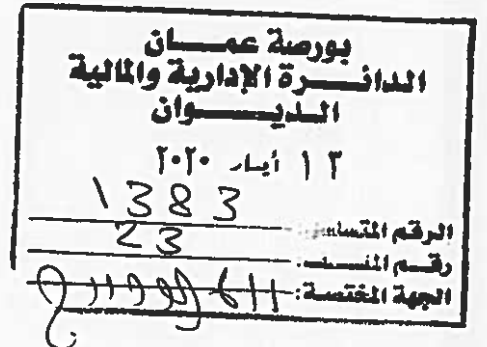 بورصة عمـــان
الدائـــرة الإدارية والمالية
الـديـــــوان
١٣ أيـار ٢٠٢٠
الرقم المتسلسل: 1383
رقـم الملـــف: 23
الجهة المختصة: